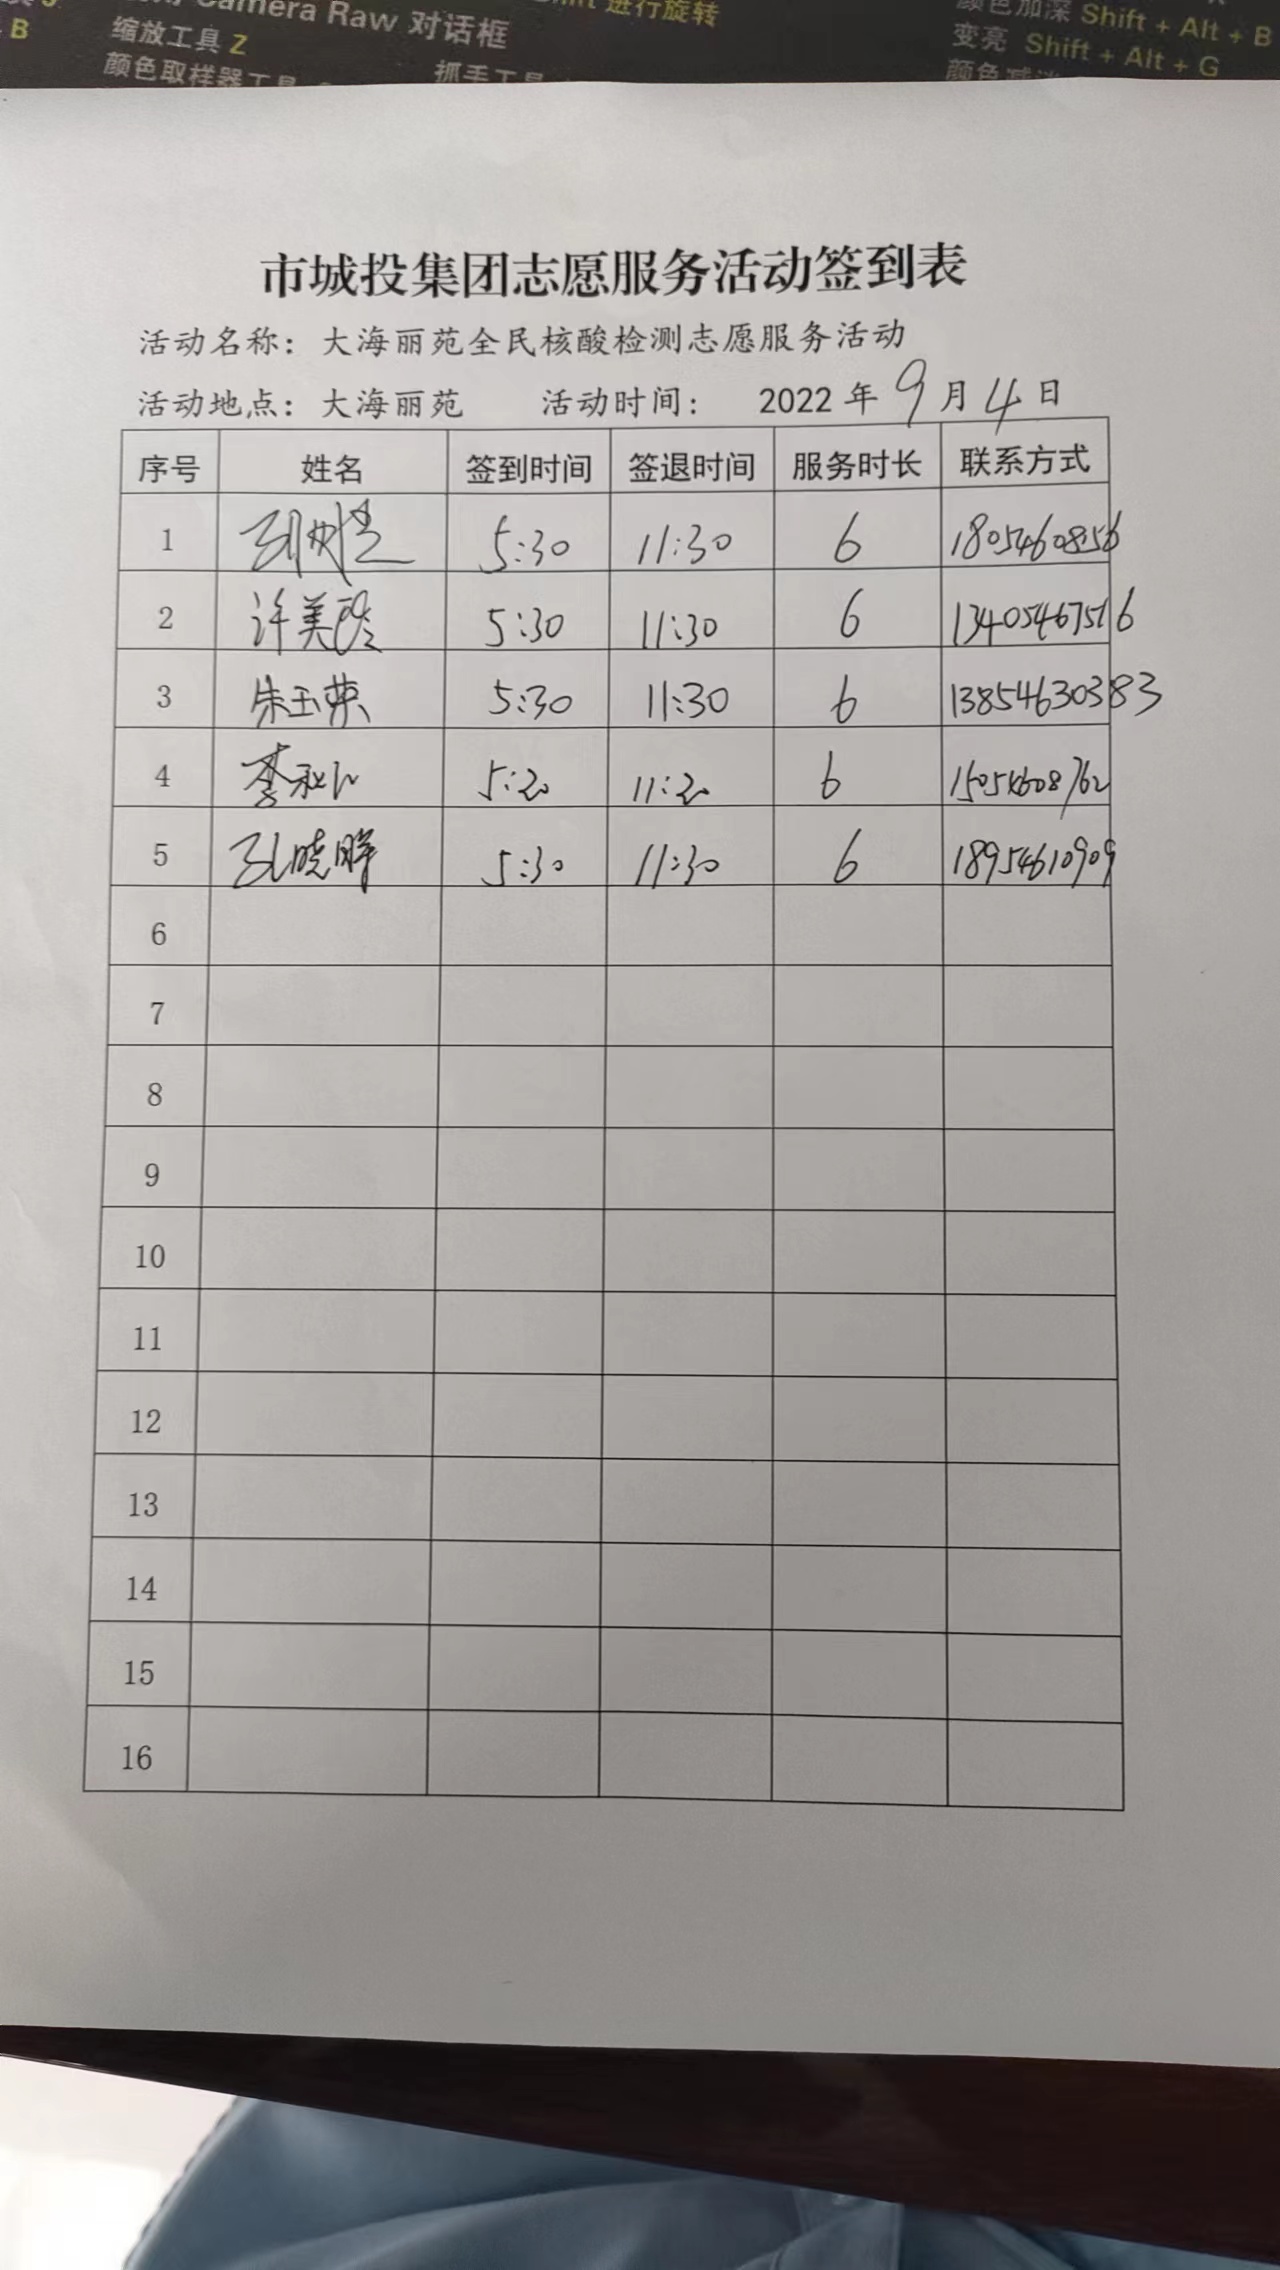 B
Camera Raw 对话框
进行旋转
颜色加深 Shift + Alt + B
缩放工具 Z
变亮 Shift + Alt + G
颜色取样器工具
抓手工具
市城投集团志愿服务活动签到表
活动名称：大海丽苑全民核酸检测志愿服务活动
活动地点：大海丽苑 活动时间： 2022 年 9 月 4 日
序号 姓名 签到时间 签退时间 服务时长 联系方式
1 5:30 11:30 6 18054608256
2 许美玲 5:30 11:30 6 13405467516
3 朱玉荣 5:30 11:30 6 13854630383
4 李 5:20 11:20 6 15054608762
5 孔晓晖 5:30 11:30 6 18954610909
6
7
8
9
10
11
12
13
14
15
16